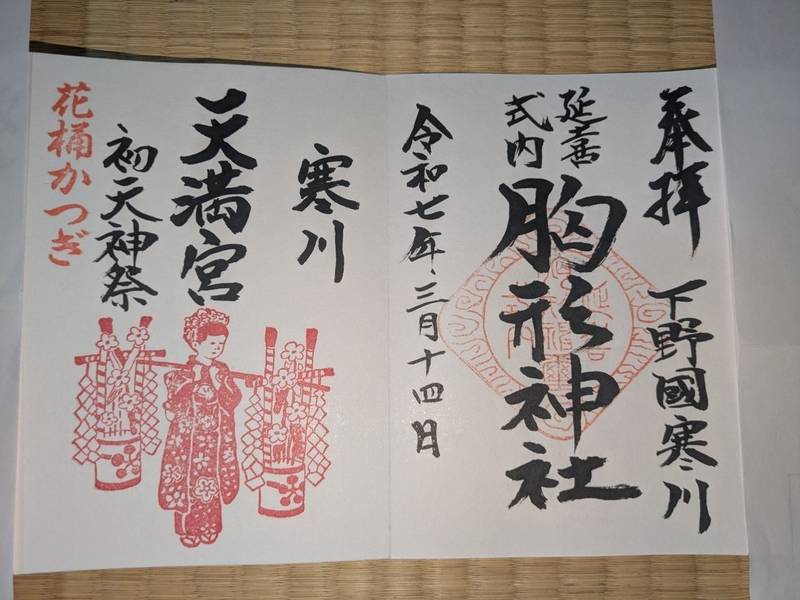 奉拝
下野國寒川
延喜
式内
胸形神社
令和七年、三月十四日
寒川
天満宮
初天神祭
花桶かつぎ